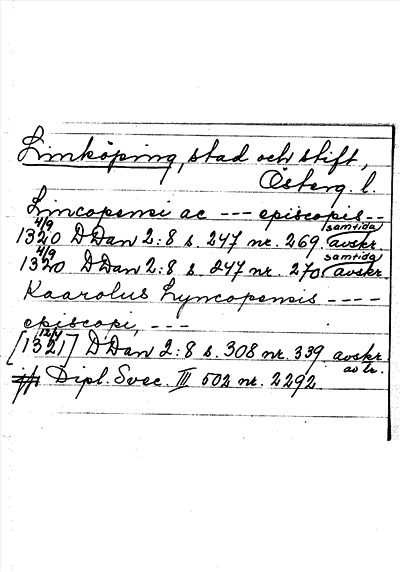 Linköping, stad och stift,
Österg. l.
Lincopensi ac --- episcopis --
4/9 samtida
1320 D Dan 2:8 s. 247 nr. 269. avskr.
4/9 samtida
1320 D Dan 2:8 s. 247 nr. 270 avskr.
Kaarolus Lyncopensis ----
episcopi, ---
[1321] D Dan 2:8 s. 308 nr. 339. avskr.
av tr.
Dipl. Svec. III 502 nr. 2292